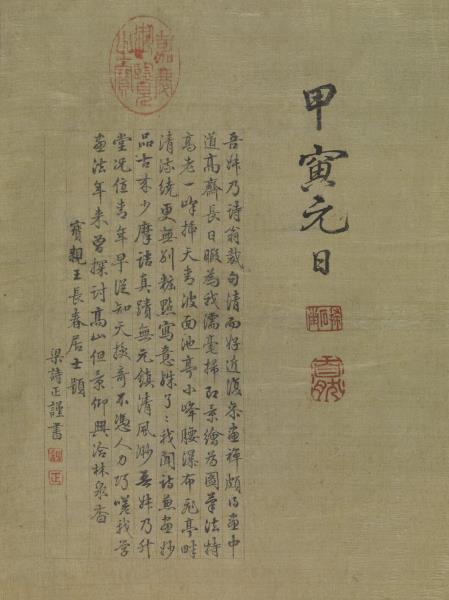 嘉慶御覽之寶
甲寅元日
吾叔乃詩翁裁句清而好近復參畫禪頗得畫中
道高齋長日暇為我濡毫掃取景繪為圖筆法特
高老一峰插天青波面池亭小峰腰瀑布飛亭畔
清流繞更無別粧點寫意殊了〻我聞詩兼畫妙
品古來少摩詰真蹟無元鎮清風渺吾叔乃升
堂況位青年早從知天機奇不憑人力巧嗟我學
畫法年來曾探討高山但景仰興洽林泉杳
寶親王長春居士題
梁詩正謹書